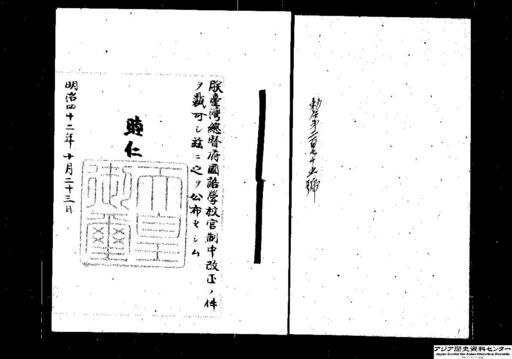 勅令第二百九十五號
朕臺灣總督府國語學校官制中改正ノ件
ヲ裁可シ茲ニ之ヲ公布セシム
睦仁
天皇
御璽
明治四十二年十月二十三日
アジア歴史資料センター
Japan Center for Asian Historical Records